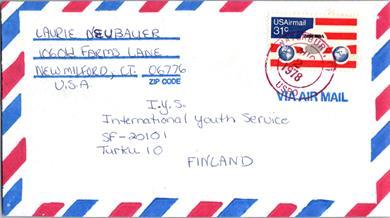 LAURIE NEUBAUER
FARMS LANE
NEW MILFORD, CT. 06776
ZIP CODE
U.S.A.
USAirmail
31c
1978
USPO
VIA AIR MAIL
I.Y.S.
International Youth Service
SF-20101
Turku 10
FINLAND